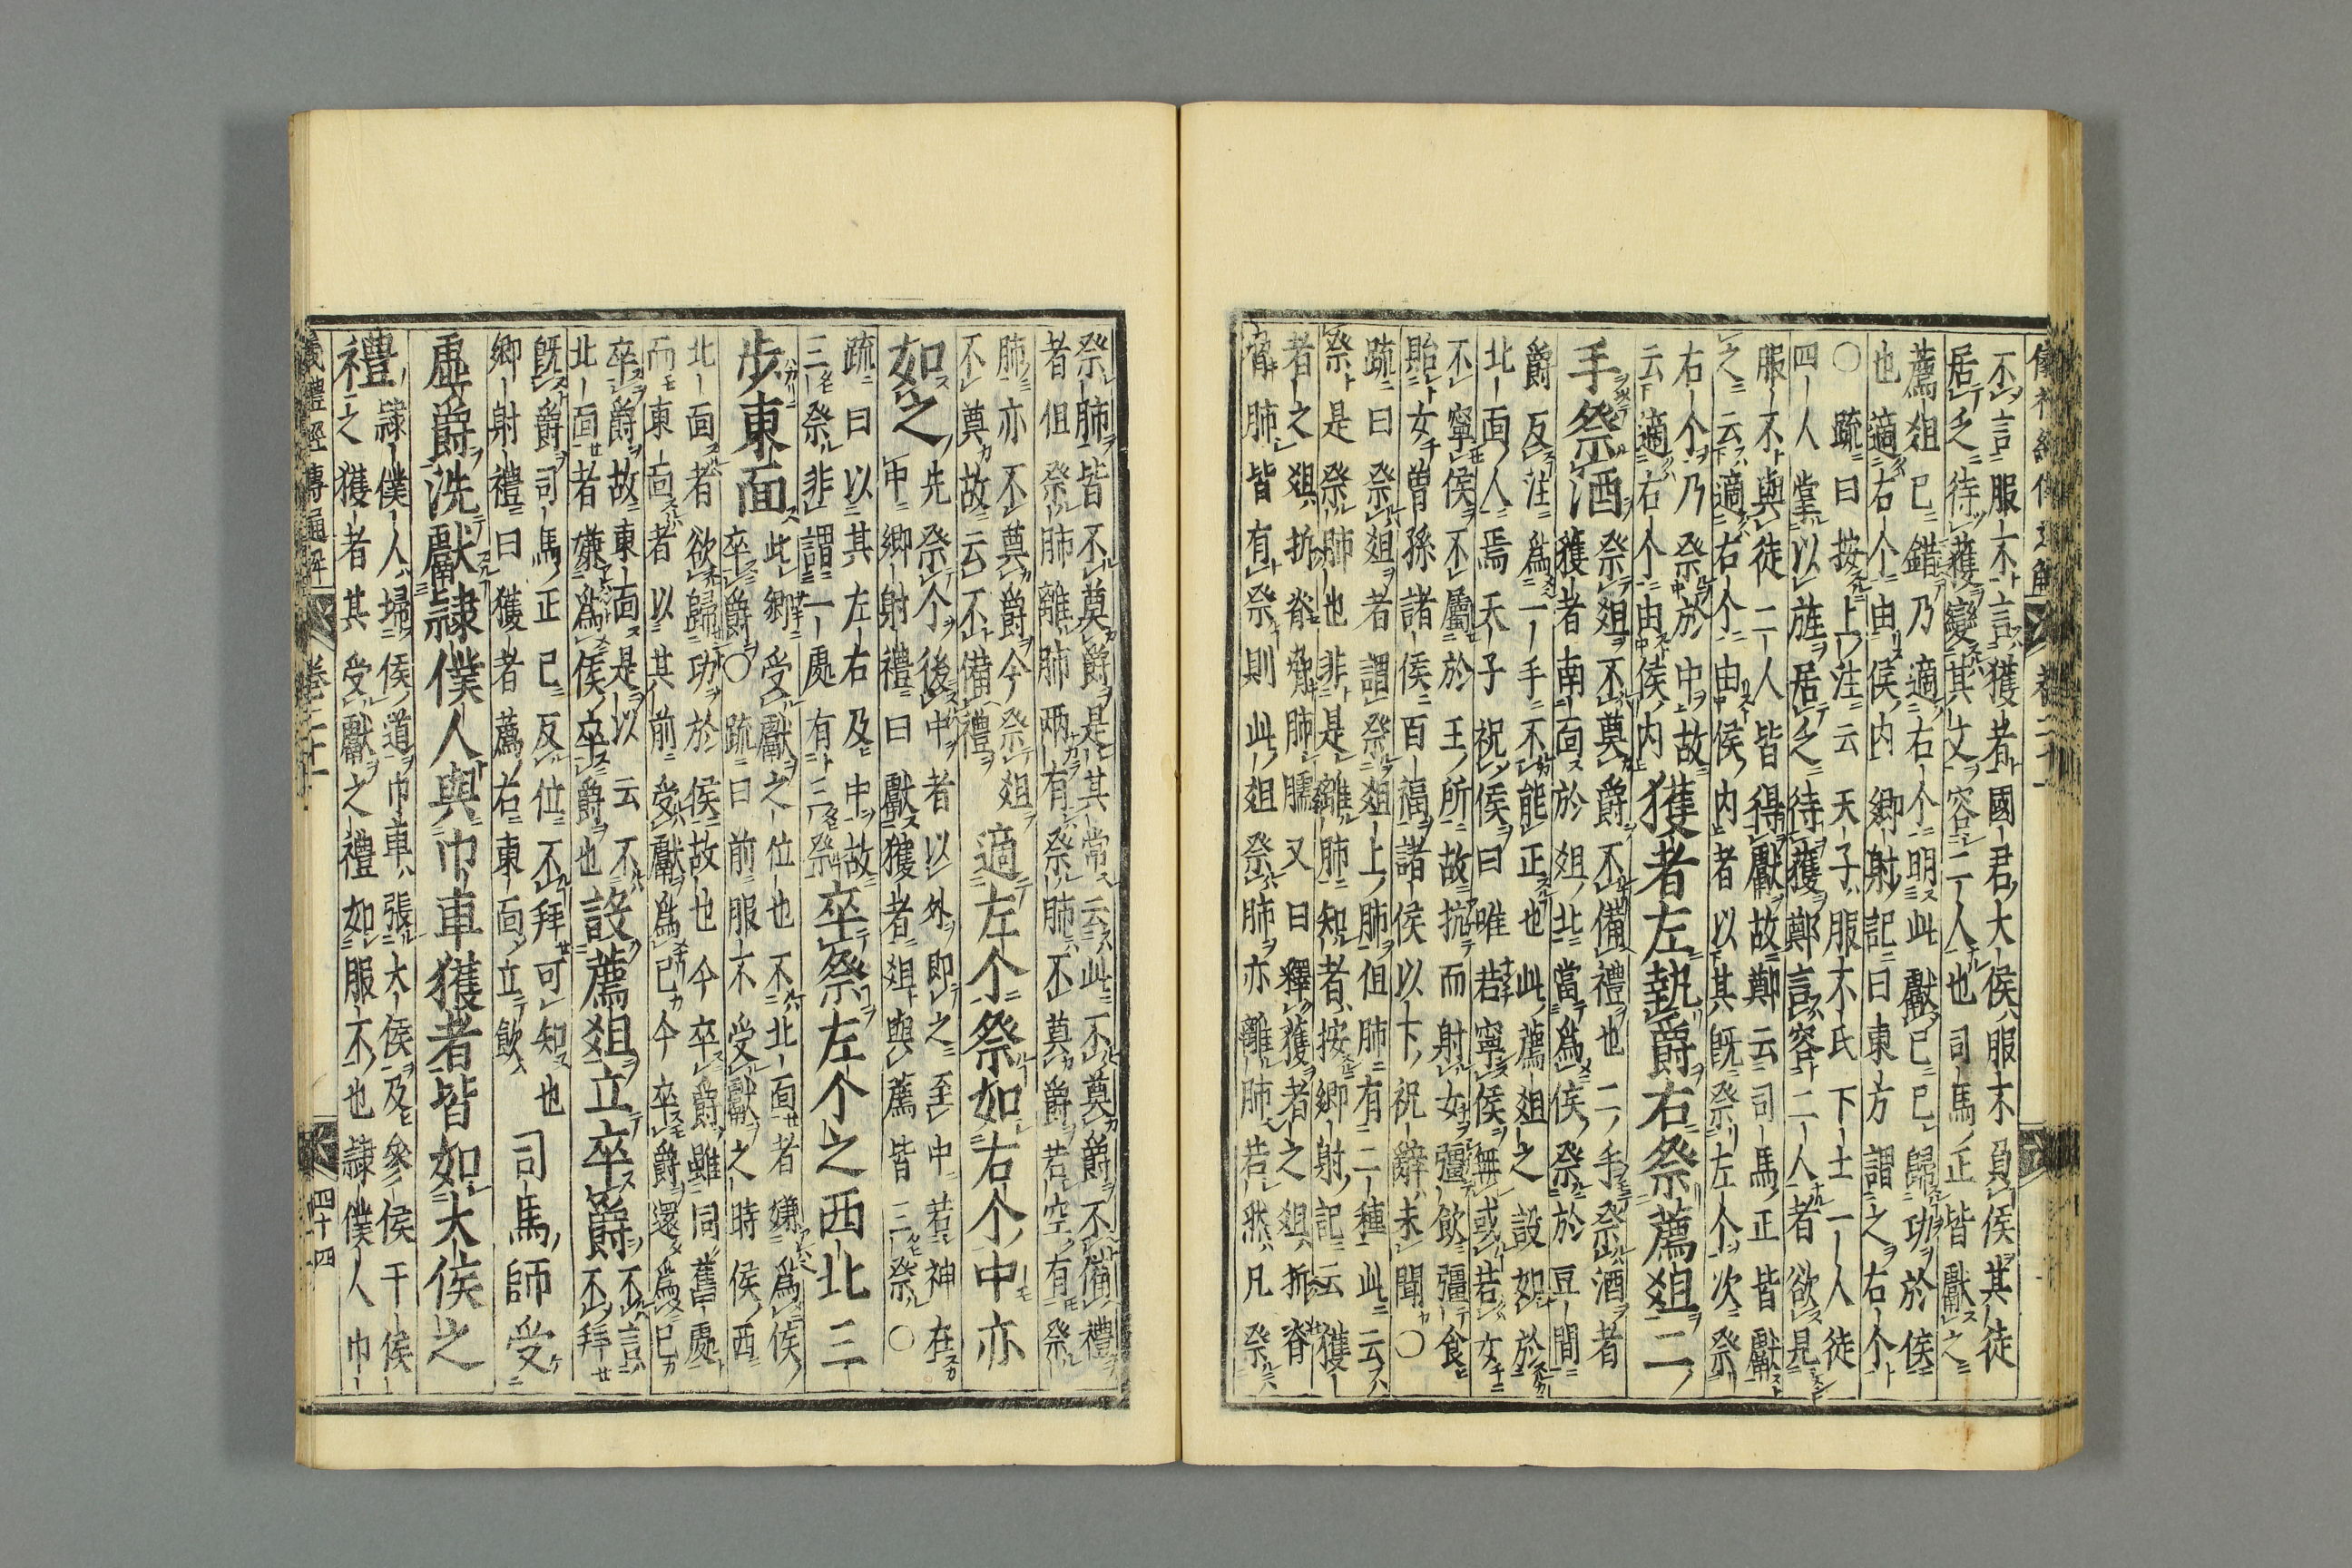 儀禮經傳通解 卷二十一
不言服不言獲者國君大侯服不負侯其徒
居乏待獲變其文容二人也司馬正皆獻之
薦俎已錯乃適右个明此獻已已歸功於侯
也適右个由侯内鄉射記曰東方謂之右个
○疏曰按上注云天子服不氏下士一人徒
四人掌以旌居乏待獲鄭言容二人者欲見
服不與徒二人皆得獻故鄭云司馬正皆獻
之云適右个由侯内者以下其既祭左个次祭
右个乃祭於中故
云適右个由侯内
獲者左執爵右祭薦俎二
手祭酒
祭俎不奠爵不備禮也二手祭酒者
獲者南面於俎北當為侯祭於豆間
爵反注為一手不能正也此薦俎之設如於
北面人焉天子祝侯曰唯若寧侯無或若女
不寧侯不屬於王所故抗而射女彊飲彊食
貽女曾孫諸侯百福諸侯以下祝辭未聞○
疏曰祭俎者謂祭俎上肺但肺有二種此云
祭是祭肺也非是離肺知者按鄉射記云獲
者之俎折脊脅肺臑又曰釋獲者之俎折脊
脅肺皆有祭則此俎祭肺亦離肺若然凡祭
祭肺皆不奠爵是其常云此不奠爵不備禮
者但祭肺離肺兩有祭肺不奠爵若空有祭
肺亦不奠爵今祭俎
不奠故云不備禮
適左个祭如右个中亦
如之
先祭个後中者以外即之至中若神在
中鄉射禮曰獻獲者俎與薦皆三祭○
疏曰以其左右及中故
三祭非謂一處有三祭
卒祭左个之西北三
步東面
此鄉受獻之位也不北面者嫌為侯
卒爵○疏曰前服不受獻之時侯西
北面者欲歸功於侯故也今卒爵雖同舊處
而東面者以其前受獻為已今卒爵還為已
卒爵故東面是以云不
北面者嫌為侯卒爵也
設薦俎立卒爵
不言
不拜
既爵司馬正已反位不拜可知也
鄉射禮曰獲者薦右東面立飲
司馬師受
虛爵洗獻隷僕人與巾車獲者皆如大侯之
禮
隷僕人掃侯道巾車張大侯及參侯干侯
之獲者其受獻之禮如服不也隷僕人巾
儀禮經傳通解 卷二十一 四十四